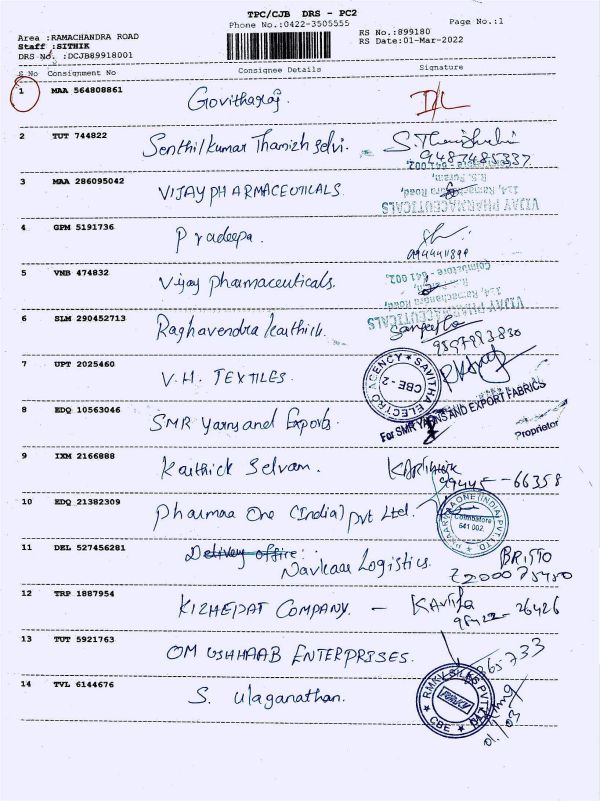 TPC/CJB DRS - PC2
Phone No.:0422-3505555
Page No.:1
Area :RAMACHANDRA ROAD
RS No.:899180
Staff :SITHIK
RS Date:01-Mar-2022
DRS No. :DCJB89918001
S No Consignment No Consignee Details Signature
1 MAA 564808861 Govitharaj. D/L
2 TUT 744822 Senthilkumar Thamizh Selvi.
9487485337
3 MAA 286095042 VIJAY PHARMACEUTICALS
VIJAY PHARMACEUTICALS
114, Ramachandra Road,
R.S. Puram,
Coimbatore - 641 002.
4 GPM 5191736 Pradeepa.
5 VNB 474832 Vijay Pharmaceuticals.
VIJAY PHARMACEUTICALS
114, Ramachandra Road,
Coimbatore - 641 002.
6 SLM 290452713 Raghavendra Karthick. Sangeetha
7 UPT 2025460 V.H. TEXTILES.
SAVITHA ELECTRO AGENCY
CBE - 2
8 EDQ 10563046 SMR Yarns and Exports.
For SMR YARNS AND EXPORT FABRICS
Proprietor
9 IXM 2166888 Karthick Selvam.
99445 - 66358
10 EDQ 21382309 Pharmaa One (India) Pvt Ltd.
PHAARMAA ONE (INDIA) PVT. LTD
Coimbatore
641 002.
11 DEL 527456281 Delivery office:
Navkaar Logistics. BRISTO
12 TRP 1887954 KIZHEPAT COMPANY. - Kavitha
98422 - 26426
13 TUT 5921763 OM USHHAAB ENTERPRISES.
14 TVL 6144676 S. Ulaganathan.
RMKV SILKS PVT
RMKV
CBE
01/03